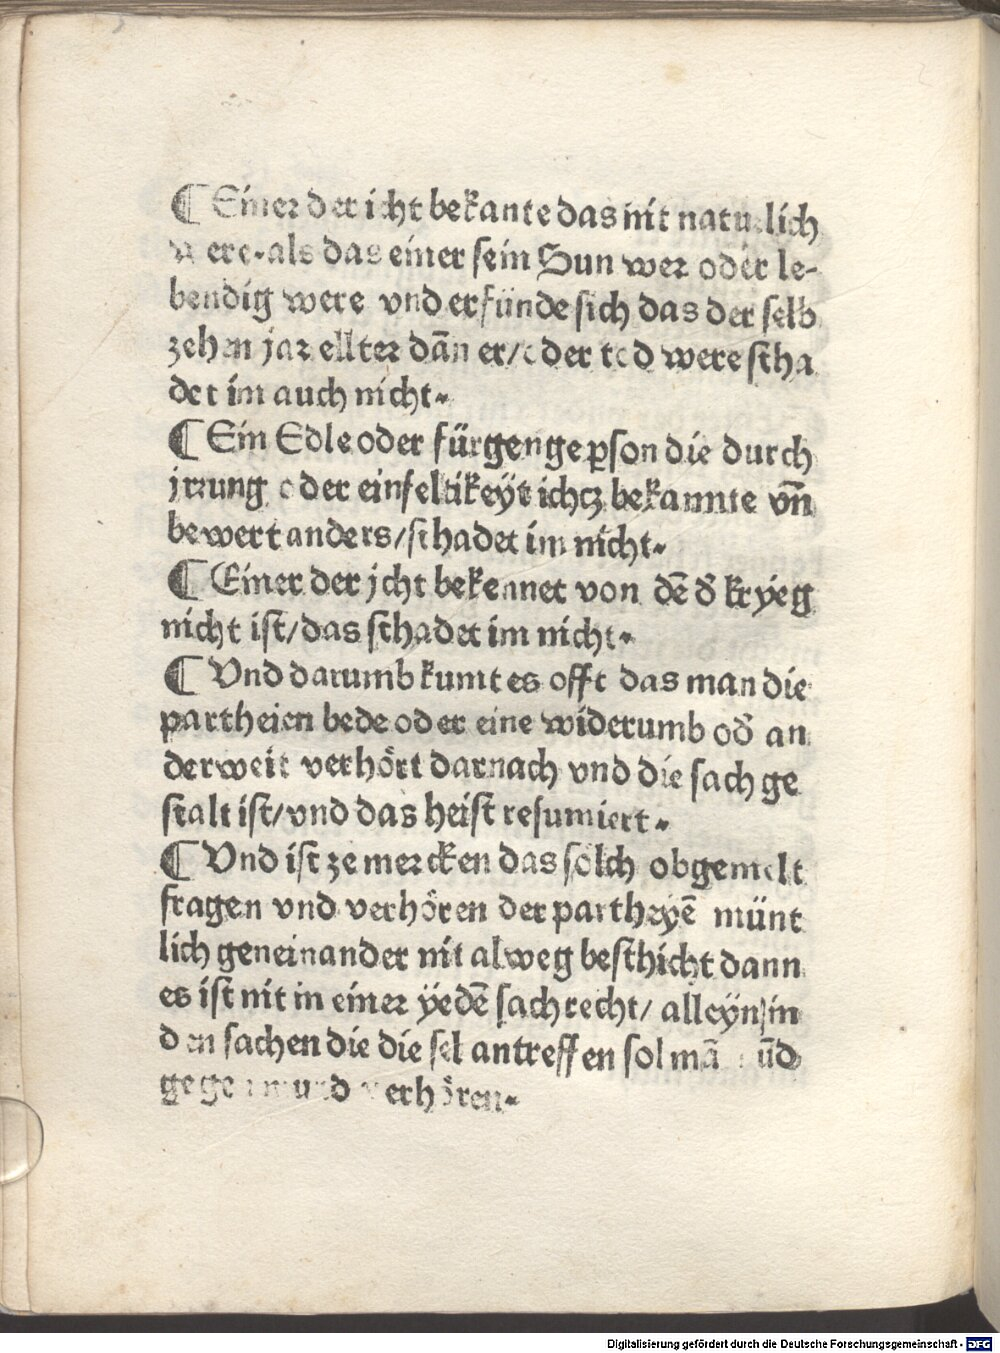 ¶ Einer der icht bekante das nit naturlich
were·als das einer sein Sun wer oder le-
bendig were vnd erfünde sich das der selb
zehen jar ellter dān er/oder tod were scha
det im auch nicht·
¶ Ein Edle oder fürgenge ꝑson die durch
jrrung oder einfeltikeÿt ichcz bekannte vn̄
bewert anders/schadet im nicht·
¶ Einer der jcht bekennet von dē d̕ kryeg
nicht ist/das schadet im nicht·
¶ Vnd darumb kumt es offt das man die
partheien bede oder eine widerumb od̕ an
derweit verhört darnach vnd die sach ge
stalt ist/vnd das heist resumiert·
¶ Vnd ist ze mercken das sölch obgemelt
fragen vnd verhören der partheyē münt
lich geneinander nit alweg beschicht dann
es ist nit in einer ÿedē sach recht/ alleÿn in
den sachen die die sel antreffen sol mā mūd
gegen mund verhören·
Digitalisierung gefördert durch die Deutsche Forschungsgemeinschaft - DFG